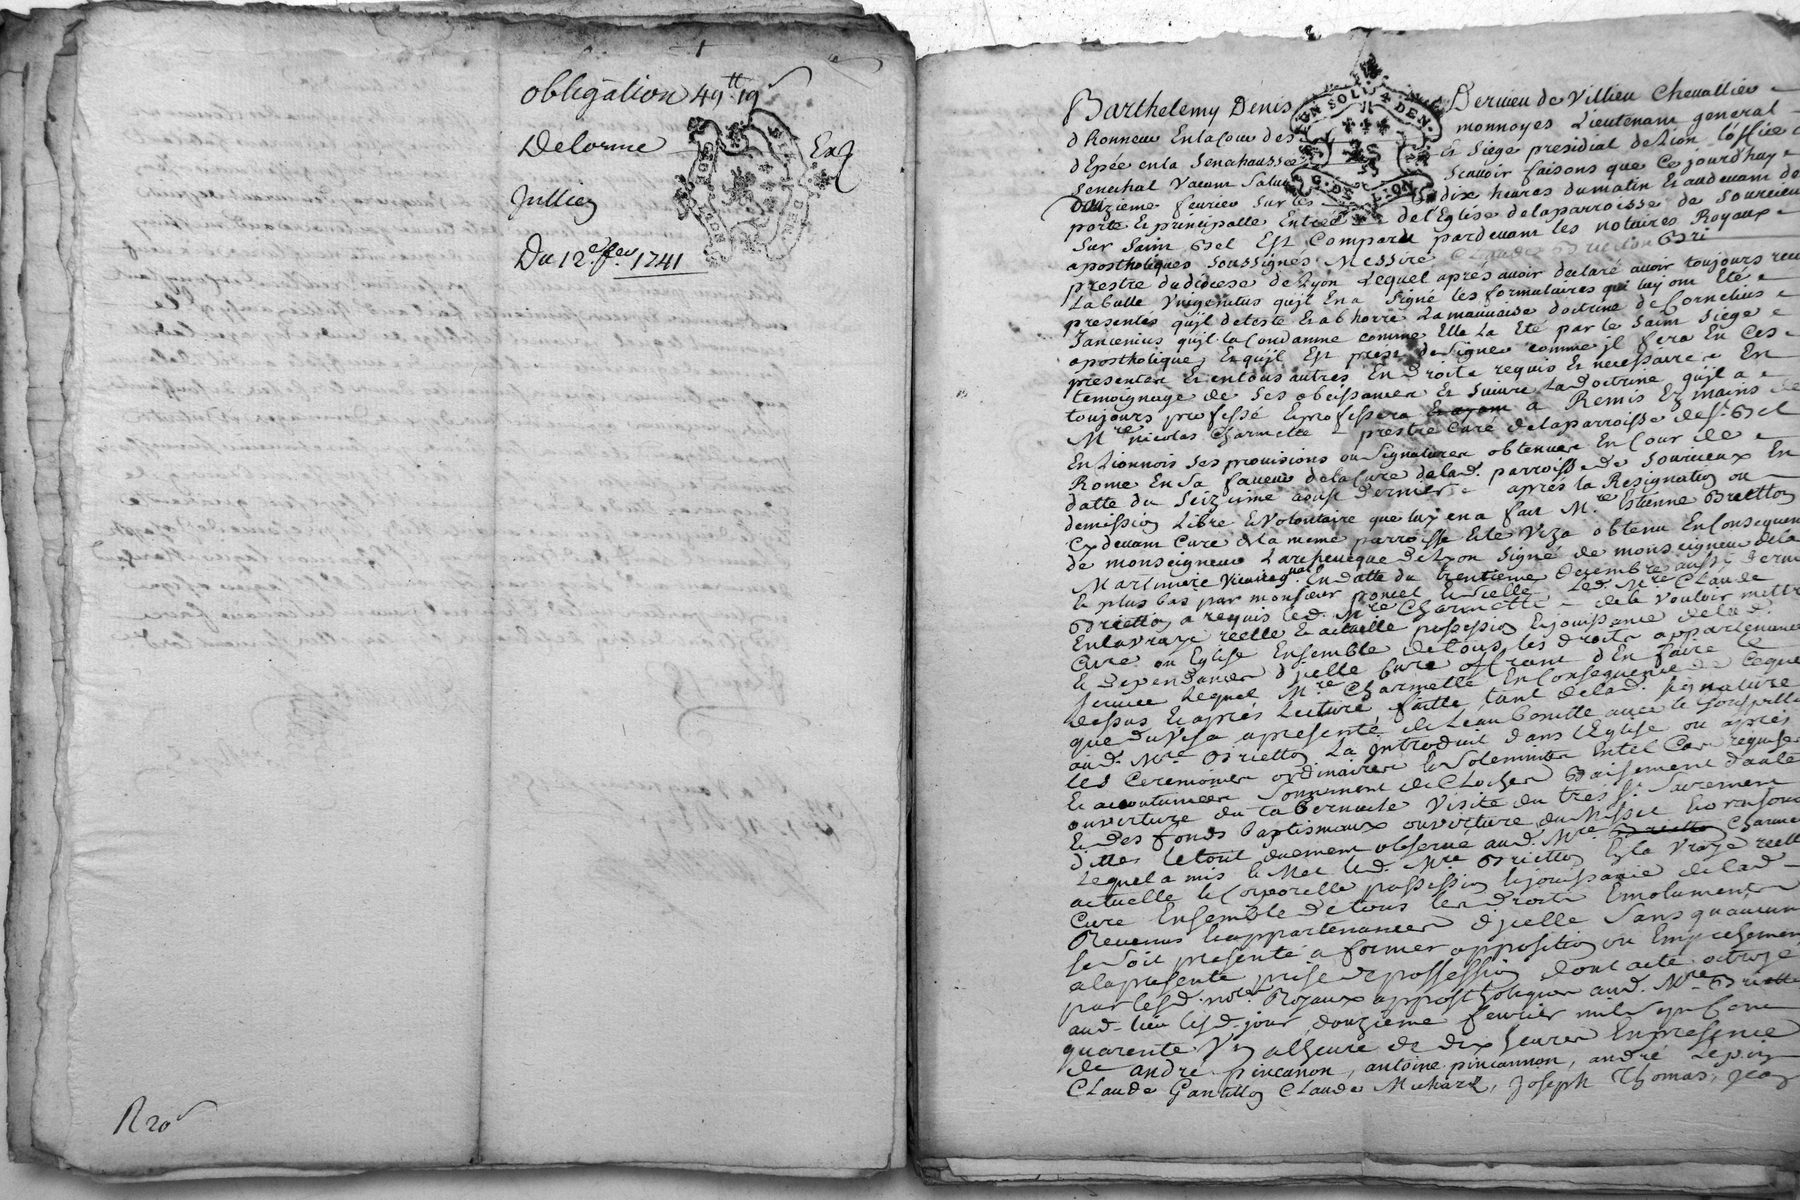 obligation 49tt 19s
Delorme
Exp
Jullien
Du 12e fev 1741
R 20s
Barthelemy Denis Dervieu de Villieu Chevallier
dhonneur En la Cour des monnoyes Lieutenant general
dEpée en la Senechaussée Et Siege presidial de Lion loffice de
Senechal Vacant Salut Scavoir faisons que Cejourdhuy
douzieme fevrier Sur les dix heures du matin Et audevant de
porte Et principalle Entrée de l'Eglise de la parroisse de Sourcieu
Sur Saint Bel Est Comparu pardevant les notaires Royaux
apostholiques Soussignés Messire Claude Brietton
prestre du diocese de Lyon Lequel apres avoir declaré avoir toujours receu
La bulle Unigenitus quil En a Signé les formulaires qui luy ont Eté
presentés quil deteste Et abhorre La mauvaise doctrine de Cornelius
Jancenius quil la Condamne comme Elle La Eté par le Saint Siege
apostholique, Et quil Est prest de Signer comme il fera En Ces
presentes Et en tous autres En droits requis Et necessaires En
temoignage de Ses obeissances Et Suivre La doctrine quil a
toujours professé Et professera Et ayant a Remis Ez mains de
Mre nicolas Charmette prestre Curé de la parroisse de St Bel
En Lionnois Ses provisions ou Signatures obtenues En Cour de
Rome En Sa faveur de la Cure de lad. parroisse de Sourcieux En
datte du Seizieme aoust dernier apres la Resignation ou
demission Libre Et Volontaire que luy en a fait Mre Etienne Brietton
Cy devant Curé de la meme parroisse Et le Viza obtenu En Consequence
de monseigneur Larcheveque de Lyon Signé de monseigneur dela
Martiniere Vicaire gnal En datte du trentieme Decembre aussi dernier
Et plus bas par monsieur poncet Et Scellé Led. Mre Claude
Brietton a requis led. Mre Charmette de le vouloir mettre
En la vraye reelle Et actuelle possession Et jouissance de lad.
Cure ou Eglise Ensemble de tous les droits appartenances
Et Dependances dicelle Cure offrant dEn faire le
Service Lequel Mre Charmette En Consequence de Ce que
dessus Et apres Lecture faitte tant de lad. Signature
que du Visa a presenté de Leau benitte avec le Goupillon
aud. Mre Brietton La introduit dans lEglise ou apres
les Ceremonies ordinaires Et Solemnites En tel Cas requises
Et accoutumées Sonnement de Cloches Baisement dautel
ouverture du tabernacle Visite du tres St Sacrement
Et des fonds baptismaux ouverture du Missel Et oraisons
dittes Le tout duement observé aud. Mre Brietton Charmette
Lequel a mis Et Met led. Mre Brietton En la Vraye reelle
actuelle Et Corporelle possession Et jouissance de lad
Cure Ensemble de tous les droits Emolumens
Revenus Et appartenances dicelle Sans quaucun
Se Soit presenté a former opposition ou Empechement
a la presente prise de possession dont acte octroyé
par lesd. notres Royaux appostholiques aud. Mre Brietton
aud. lieu lesd. jour douzieme fevrier mil Sept Cent
quarente Un a lheure de dix heures En presence
de andré pincanon, antoine pincannon, andré Lepin
Claude Gantillon Claude Michard, Joseph Thomas, Jean